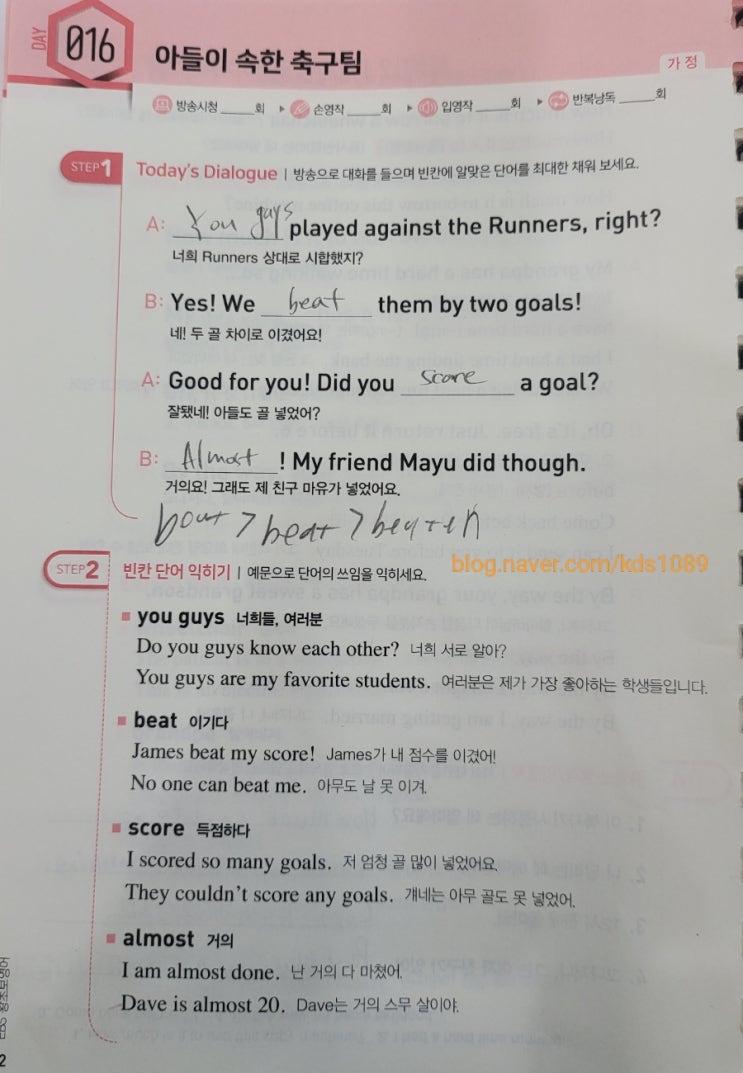 DAY 016 아들이 속한 축구팀
가정
방송시청 _____회 ▶ 손영작 _____회 ▶ 입영작 _____회 ▶ 반복낭독 _____회
STEP1 Today's Dialogue | 방송으로 대화를 들으며 빈칸에 알맞은 단어를 최대한 채워 보세요.
A: You guys played against the Runners, right?
너희 Runners 상대로 시합했지?
B: Yes! We beat them by two goals!
네! 두 골 차이로 이겼어요!
A: Good for you! Did you score a goal?
잘됐네! 아들도 골 넣었어?
B: Almost! My friend Mayu did though.
거의요! 그래도 제 친구 마유가 넣었어요.
> beat >
blog.naver.com/kds1089
STEP2 빈칸 단어 익히기 | 예문으로 단어의 쓰임을 익히세요.
■ you guys 너희들, 여러분
Do you guys know each other? 너희 서로 알아?
You guys are my favorite students. 여러분은 제가 가장 좋아하는 학생들입니다.
■ beat 이기다
James beat my score! James가 내 점수를 이겼어!
No one can beat me. 아무도 날 못 이겨.
■ score 득점하다
I scored so many goals. 저 엄청 골 많이 넣었어요.
They couldn't score any goals. 걔네는 아무 골도 못 넣었어.
■ almost 거의
I am almost done. 난 거의 다 마쳤어.
Dave is almost 20. Dave는 거의 스무 살이야.
EBS 왕초보영어
2